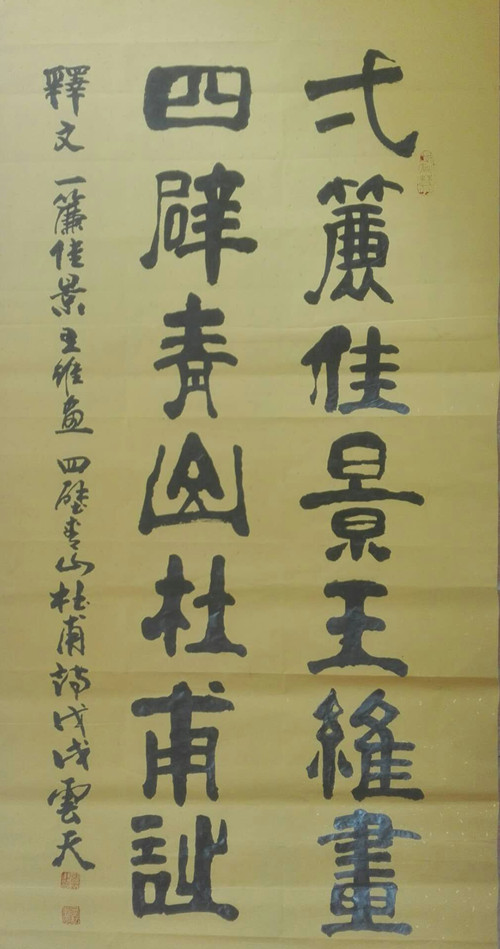 弌簾佳景王維畫
四辟青山杜甫詩
釋文 一簾佳景王維畫 四壁青山杜甫詩 戊戌雲天